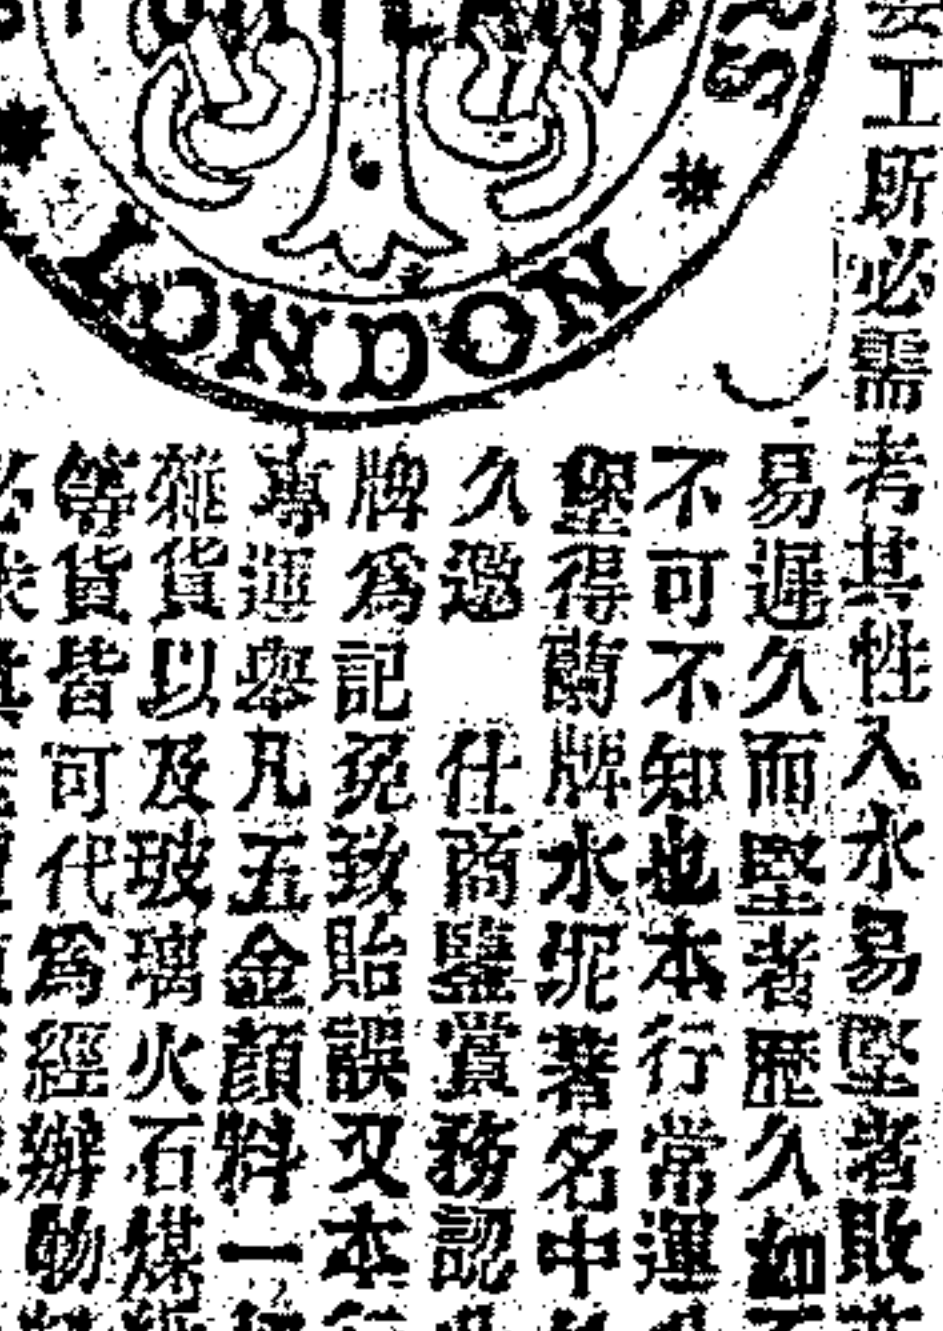 LONDON
工所必需考其性入水易堅者敗
易遲久而堅者歷久如
不可不知也本行常運
堡得蘭牌水坭著名中
久邀 仕商鑒賞務認
牌為記免致貽誤又本行
專運舉凡五金顏料一
雜貨以及玻璃火石煤
等貨皆可代為經辦物